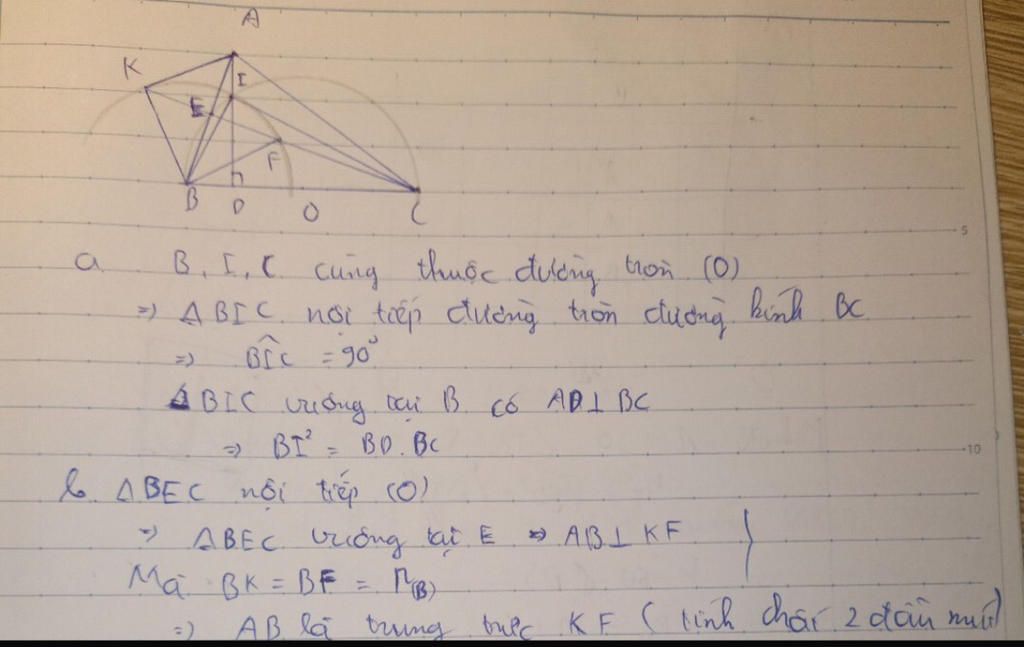 A
K
I
E
F
B D O C
5
a B, I, C cùng thuộc đường tròn (O)
=> ΔBIC nội tiếp đường tròn đường kính BC
=> BÎC = 90°
ΔBIC vuông tại B có AD⊥BC
=> BI² = BD.BC
10
b. ΔBEC nội tiếp (O)
=> ΔBEC vuông tại E => AB⊥KF }
Mà BK = BF = R(B)
=> AB là trung trực KF ( tính chất 2 đầu mút)